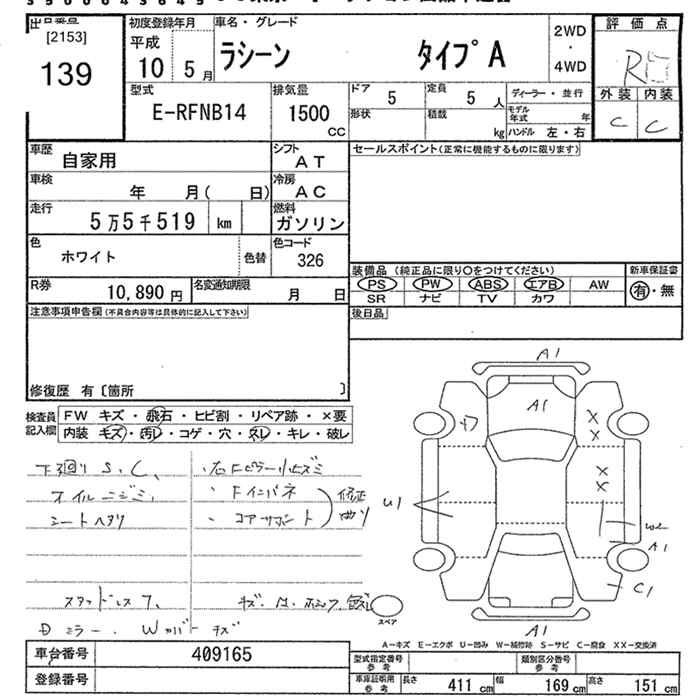 出品番号
[2153]
139
初度登録年月
平成
10 5月
車名・グレード
ラシーン タイプA
2WD
・
4WD
評価点
R
外装 内装
C C
型式
E-RFNB14
排気量
1500
CC
ドア
5
定員
5人
形状
積載
kg
ディーラー・並行
モデル年式 年
ハンドル 左・右
車歴
自家用
シフト
AT
車検
年 月( 日)
冷房
AC
走行
5万5千519 km
燃料
ガソリン
色
ホワイト
色替
色コード
326
R券
10,890 円
名変通知期限
月 日
セールスポイント(正常に機能するものに限ります)
装備品 (純正品に限り○をつけてください)
PS PW ABS エアB AW
SR ナビ TV カワ
新車保証書
有・無
後日品
注意事項申告欄(不具合内容等は具体的に記入して下さい)
修復歴 有〔箇所 〕
検査員記入欄
FW キズ・飛石・ヒビ割・リペア跡・×要
内装 キズ・汚レ・コゲ・穴・スレ・キレ・破レ
下廻り S、C、
オイルニジミ、
シートヘタリ
・右Fピラー
・Fインパネ
・コアサポート
修正
曲り
スタッドレス
Dミラー、Wカバーキズ
A1
A1
U1
X
X
X
X
W2
A1
C1
A1
スペア
A-キズ E-エクボ U-凹み W-補修跡 S-サビ C-腐食 XX-交換済
車台番号
409165
登録番号
型式指定番号
参考
類別区分番号
参考
車庫証明用
参考
長さ 411 cm
幅 169 cm
高さ 151 cm